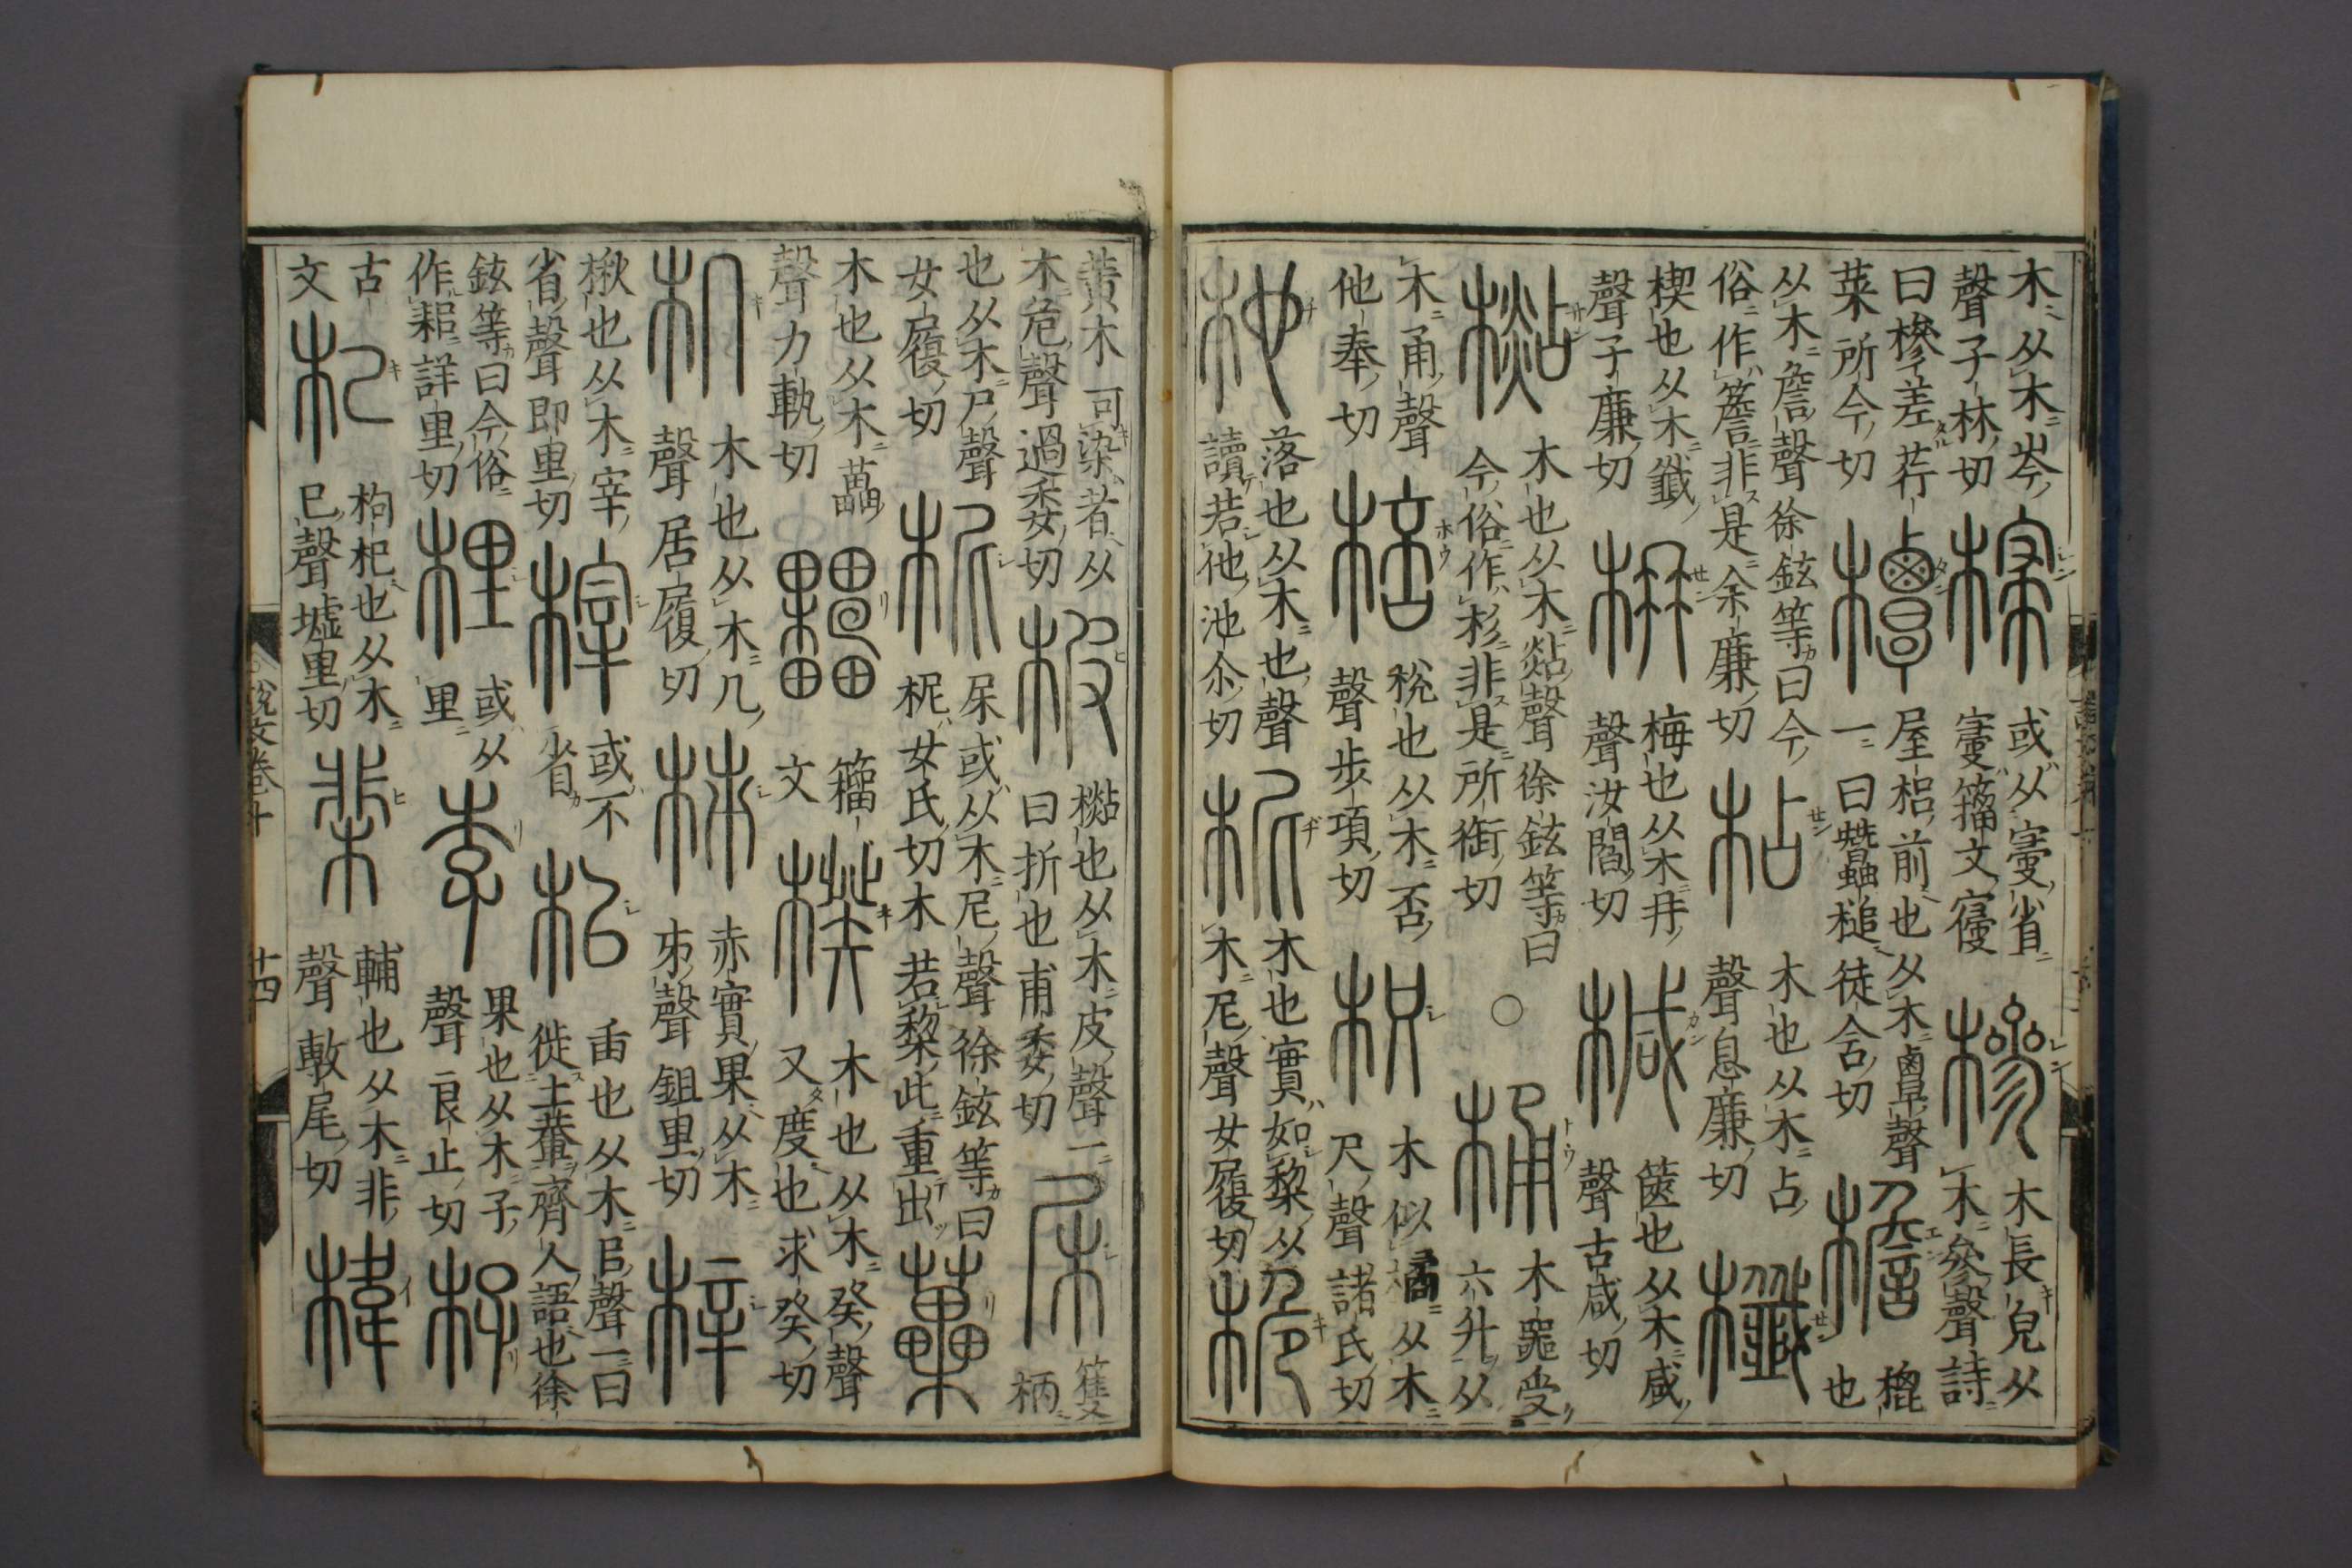 木从木岑
聲子林切
梫
或从㝲省
㝲籀文寑
槮
木長皃从
木參聲詩
曰槮差荇
菜所今切
橝
屋梠前也从木𪉷聲
一曰蠶槌徒含切
檐
㮰
也
从木詹聲徐鉉等曰今
俗作簷非是余廉切
枮
木也从木占
聲息廉切
櫼
楔也从木韱
聲子廉切
枏
梅也从木冄
聲汝閻切
椷
篋也从木咸
聲古咸切
𣚎
木也从木煔聲徐鉉等曰
今俗作杉非是所銜切
○
桶
木噐受
六升从
木甬聲
他奉切
棓
梲也从木咅
聲步項切
枳
木似橘从木
尺聲諸氏切
杝
落也从木也聲
讀若他池尒切
柅
木也實如棃从
木尼聲女履切
桅
黃木可染者从
木危聲過委切
柀
㯕也从木皮聲一
曰折也甫委切
杘
篗
柄
也从木尸聲
女履切
柅
杘或从木尼聲徐鉉等曰
柅女氏切木若棃此重出
櫐
木也从木畾
聲力軌切
籀
文
楑
木也从木癸聲
又度也求癸切
机
木也从木几
聲居履切
柹
赤實果从木
𠂔聲鉏里切
梓
楸也从木宰
省聲即里切
榟
或不
省
㭒
臿也从木㠯聲一曰
徙土輂齊人語也徐
鉉等曰今俗
作耜詳里切
梩
或从
里
李
果也从木子
聲良止切
杍
古
文
杞
枸杞也从木
已聲墟里切
棐
輔也从木非
聲敷尾切
椲
說文卷十
廿四